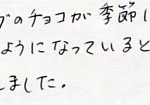 グのチョコが季節に
ようになっていると
しました。